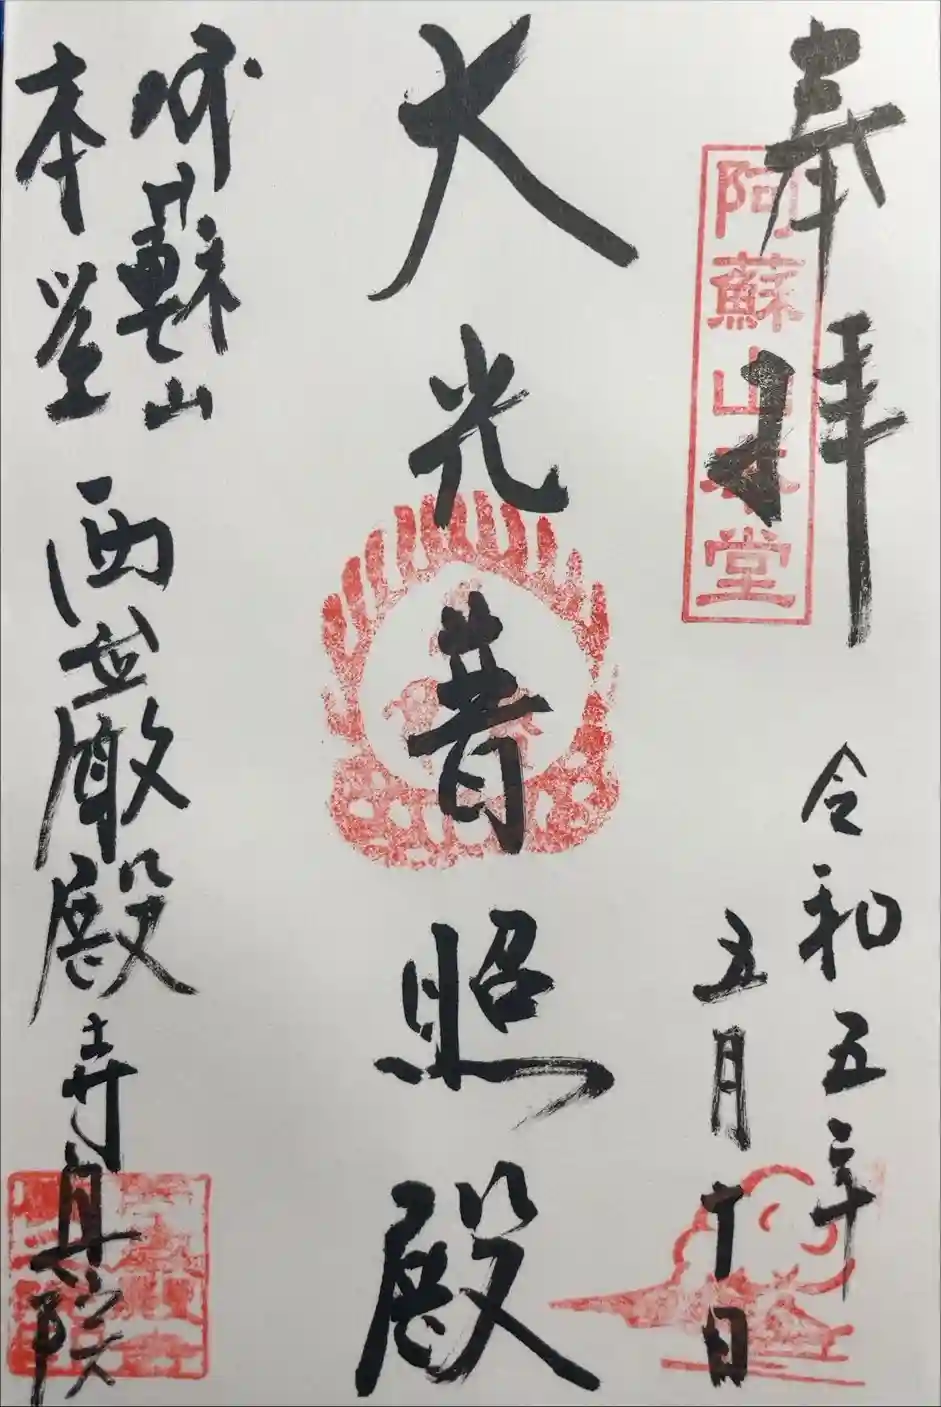 奉拝
阿蘇山本堂
令和五年
五月十日
大光普照殿
阿蘇山
本堂 西巌殿寺 院